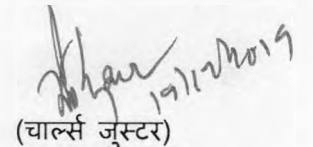 19/12/2019
(चार्ल्स जुस्टर)